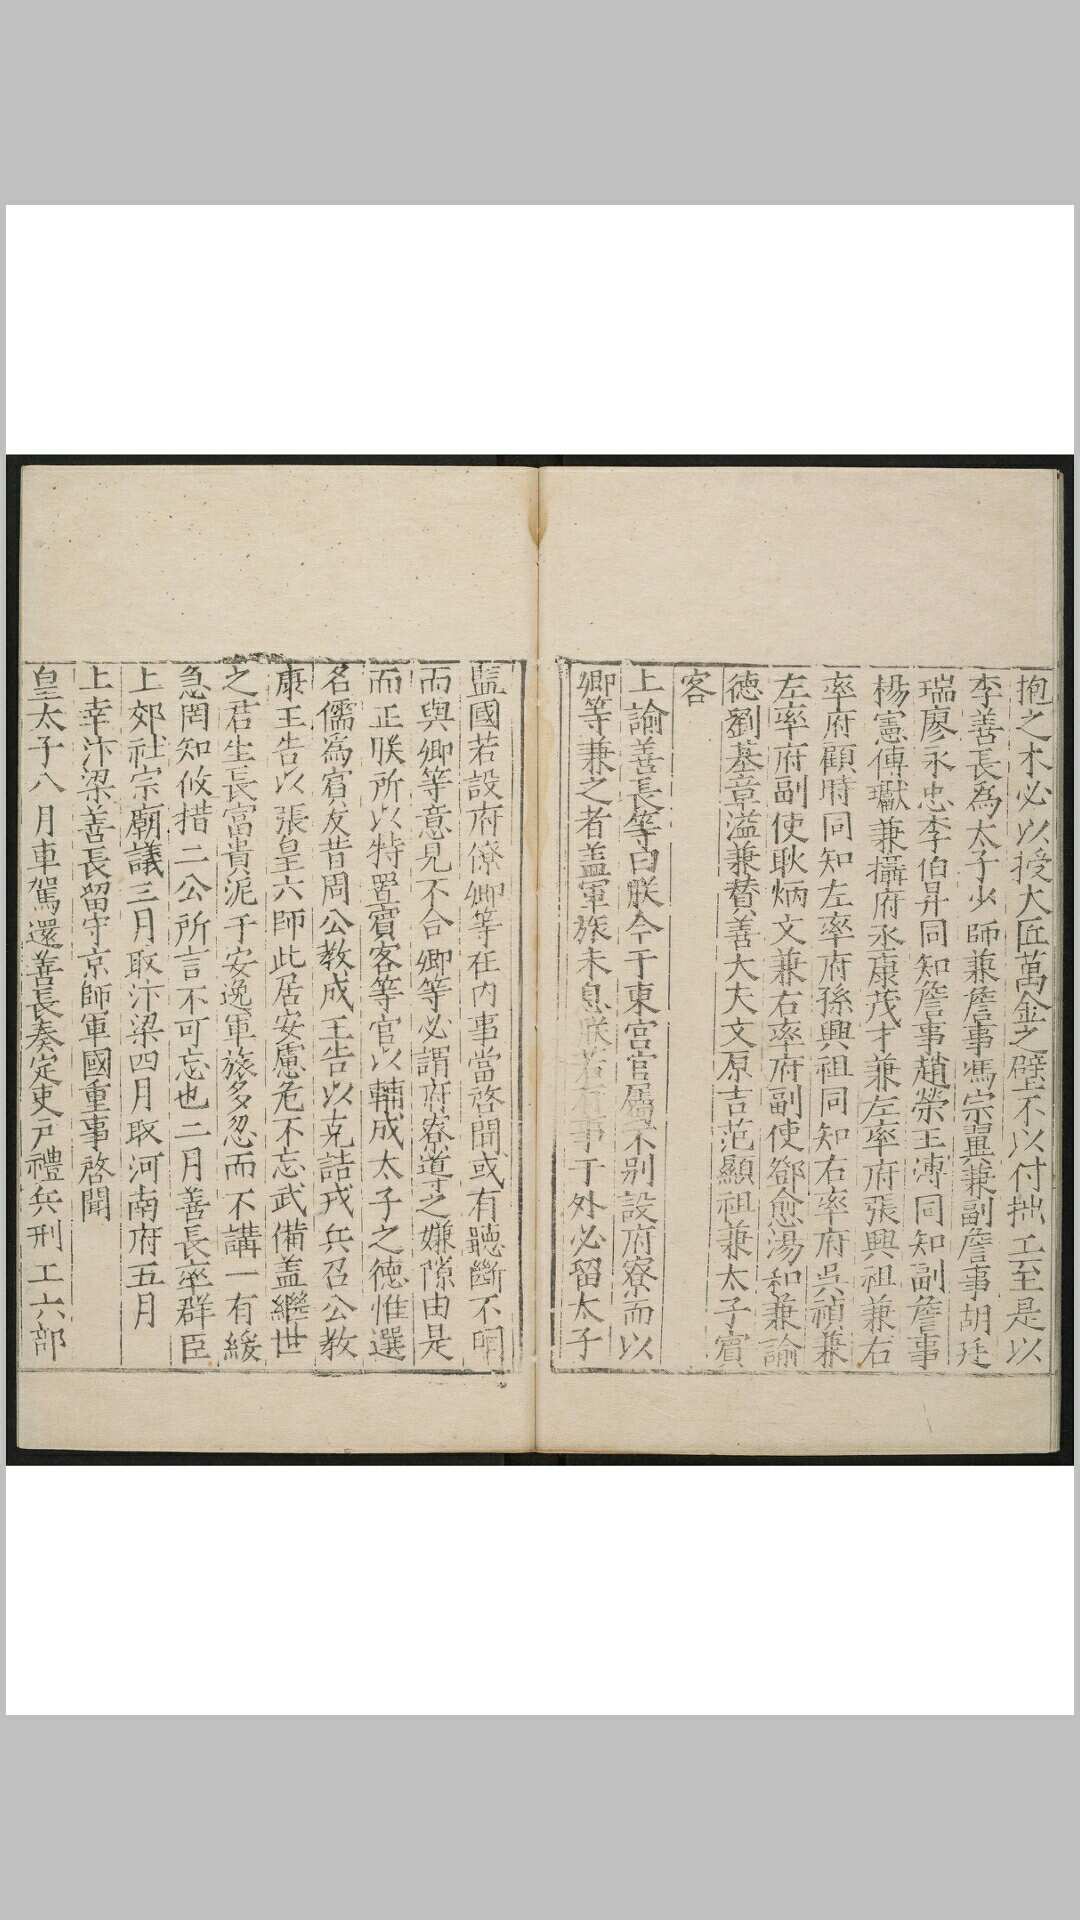 抱之木必以授大匠萬金之璧不以付拙工至是以
李善長為太子少師兼詹事馮宗異兼副詹事胡廷
瑞廖永忠李伯昇同知詹事趙榮王溥同知副詹事
楊憲傅瓛兼攝府丞康茂才兼左率府張興祖兼右
率府顧時同知左率府孫興祖同知右率府吳禎兼
左率府副使耿炳文兼右率府副使鄧愈湯和兼諭
德劉基章溢兼贊善大夫文原吉范顯祖兼太子賓
客
上諭善長等曰朕今于東宮官屬不别設府寮而以
卿等兼之者盖軍旅未息朕若有事于外必留太子
監國若設府僚卿等在内事當啓聞或有聽斷不明
而與卿等意見不合卿等必謂府寮導之嫌隙由是
而正朕所以特置賓客等官以輔成太子之德惟選
名儒為賓友昔周公教成王告以克詰戎兵召公教
康王告以張皇六師此居安慮危不忘武備盖繼世
之君生長富貴泥于安逸軍旅多忽而不講一有緩
急罔知攸措二公所言不可忘也二月善長率群臣
上郊社宗廟議三月取汴梁四月取河南府五月
上幸汴梁善長留守京師軍國重事啓聞
皇太子八月車駕還善長奏定吏戶禮兵刑工六部